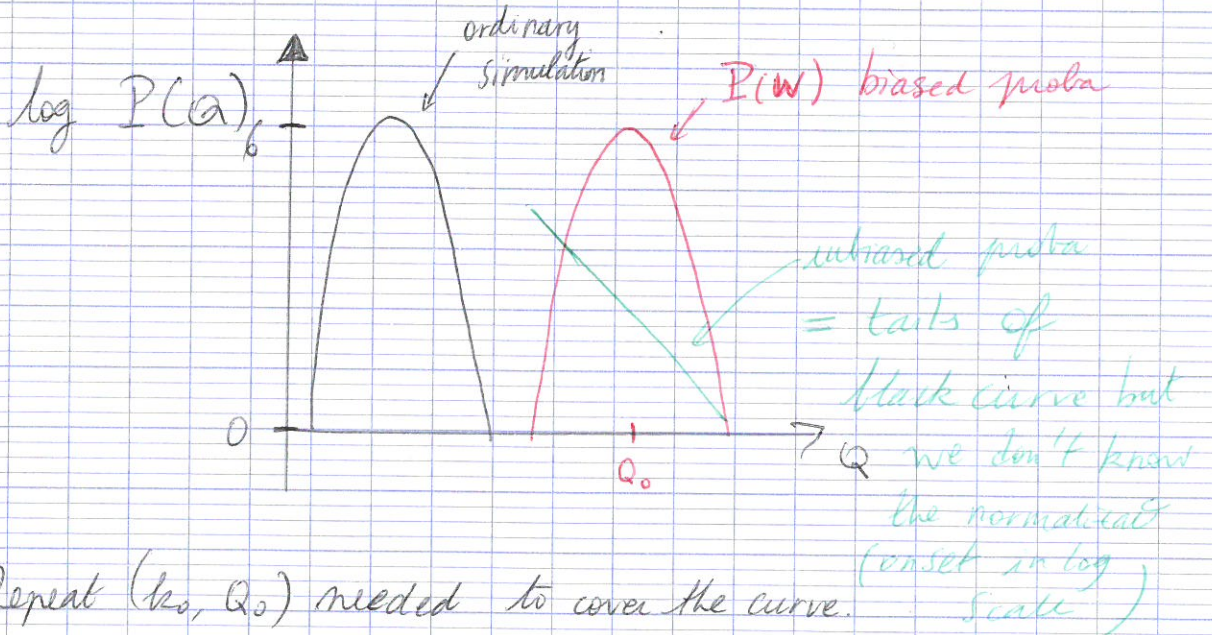 ordinary
simulation
log P(Q)
6
P(W) biased proba
unbiased proba
= tails of
black curve but
0
Q
we don't know
Q₀
the normalizat
(onset in log
scale)
Repeat (k₀, Q₀) needed to cover the curve.